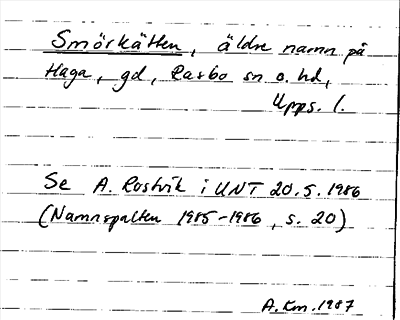 Smörkätten, äldre namn på
Haga, gd, Rasbo sn o. hd,
Upps. l.
Se A. Rostvik i UNT 20.5.1986
(Namnspalten 1985-1986, s. 20)
A.Km.1987